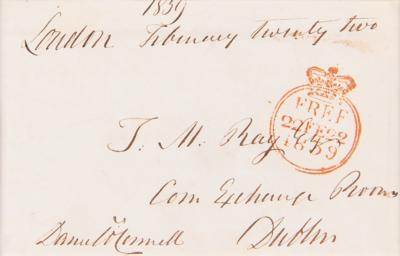 1839
London February twenty two
FREE
22 FE 22
1839
T. M. Ray Esq
Corn Exchange Rooms
Daniel O'Connell
Dublin